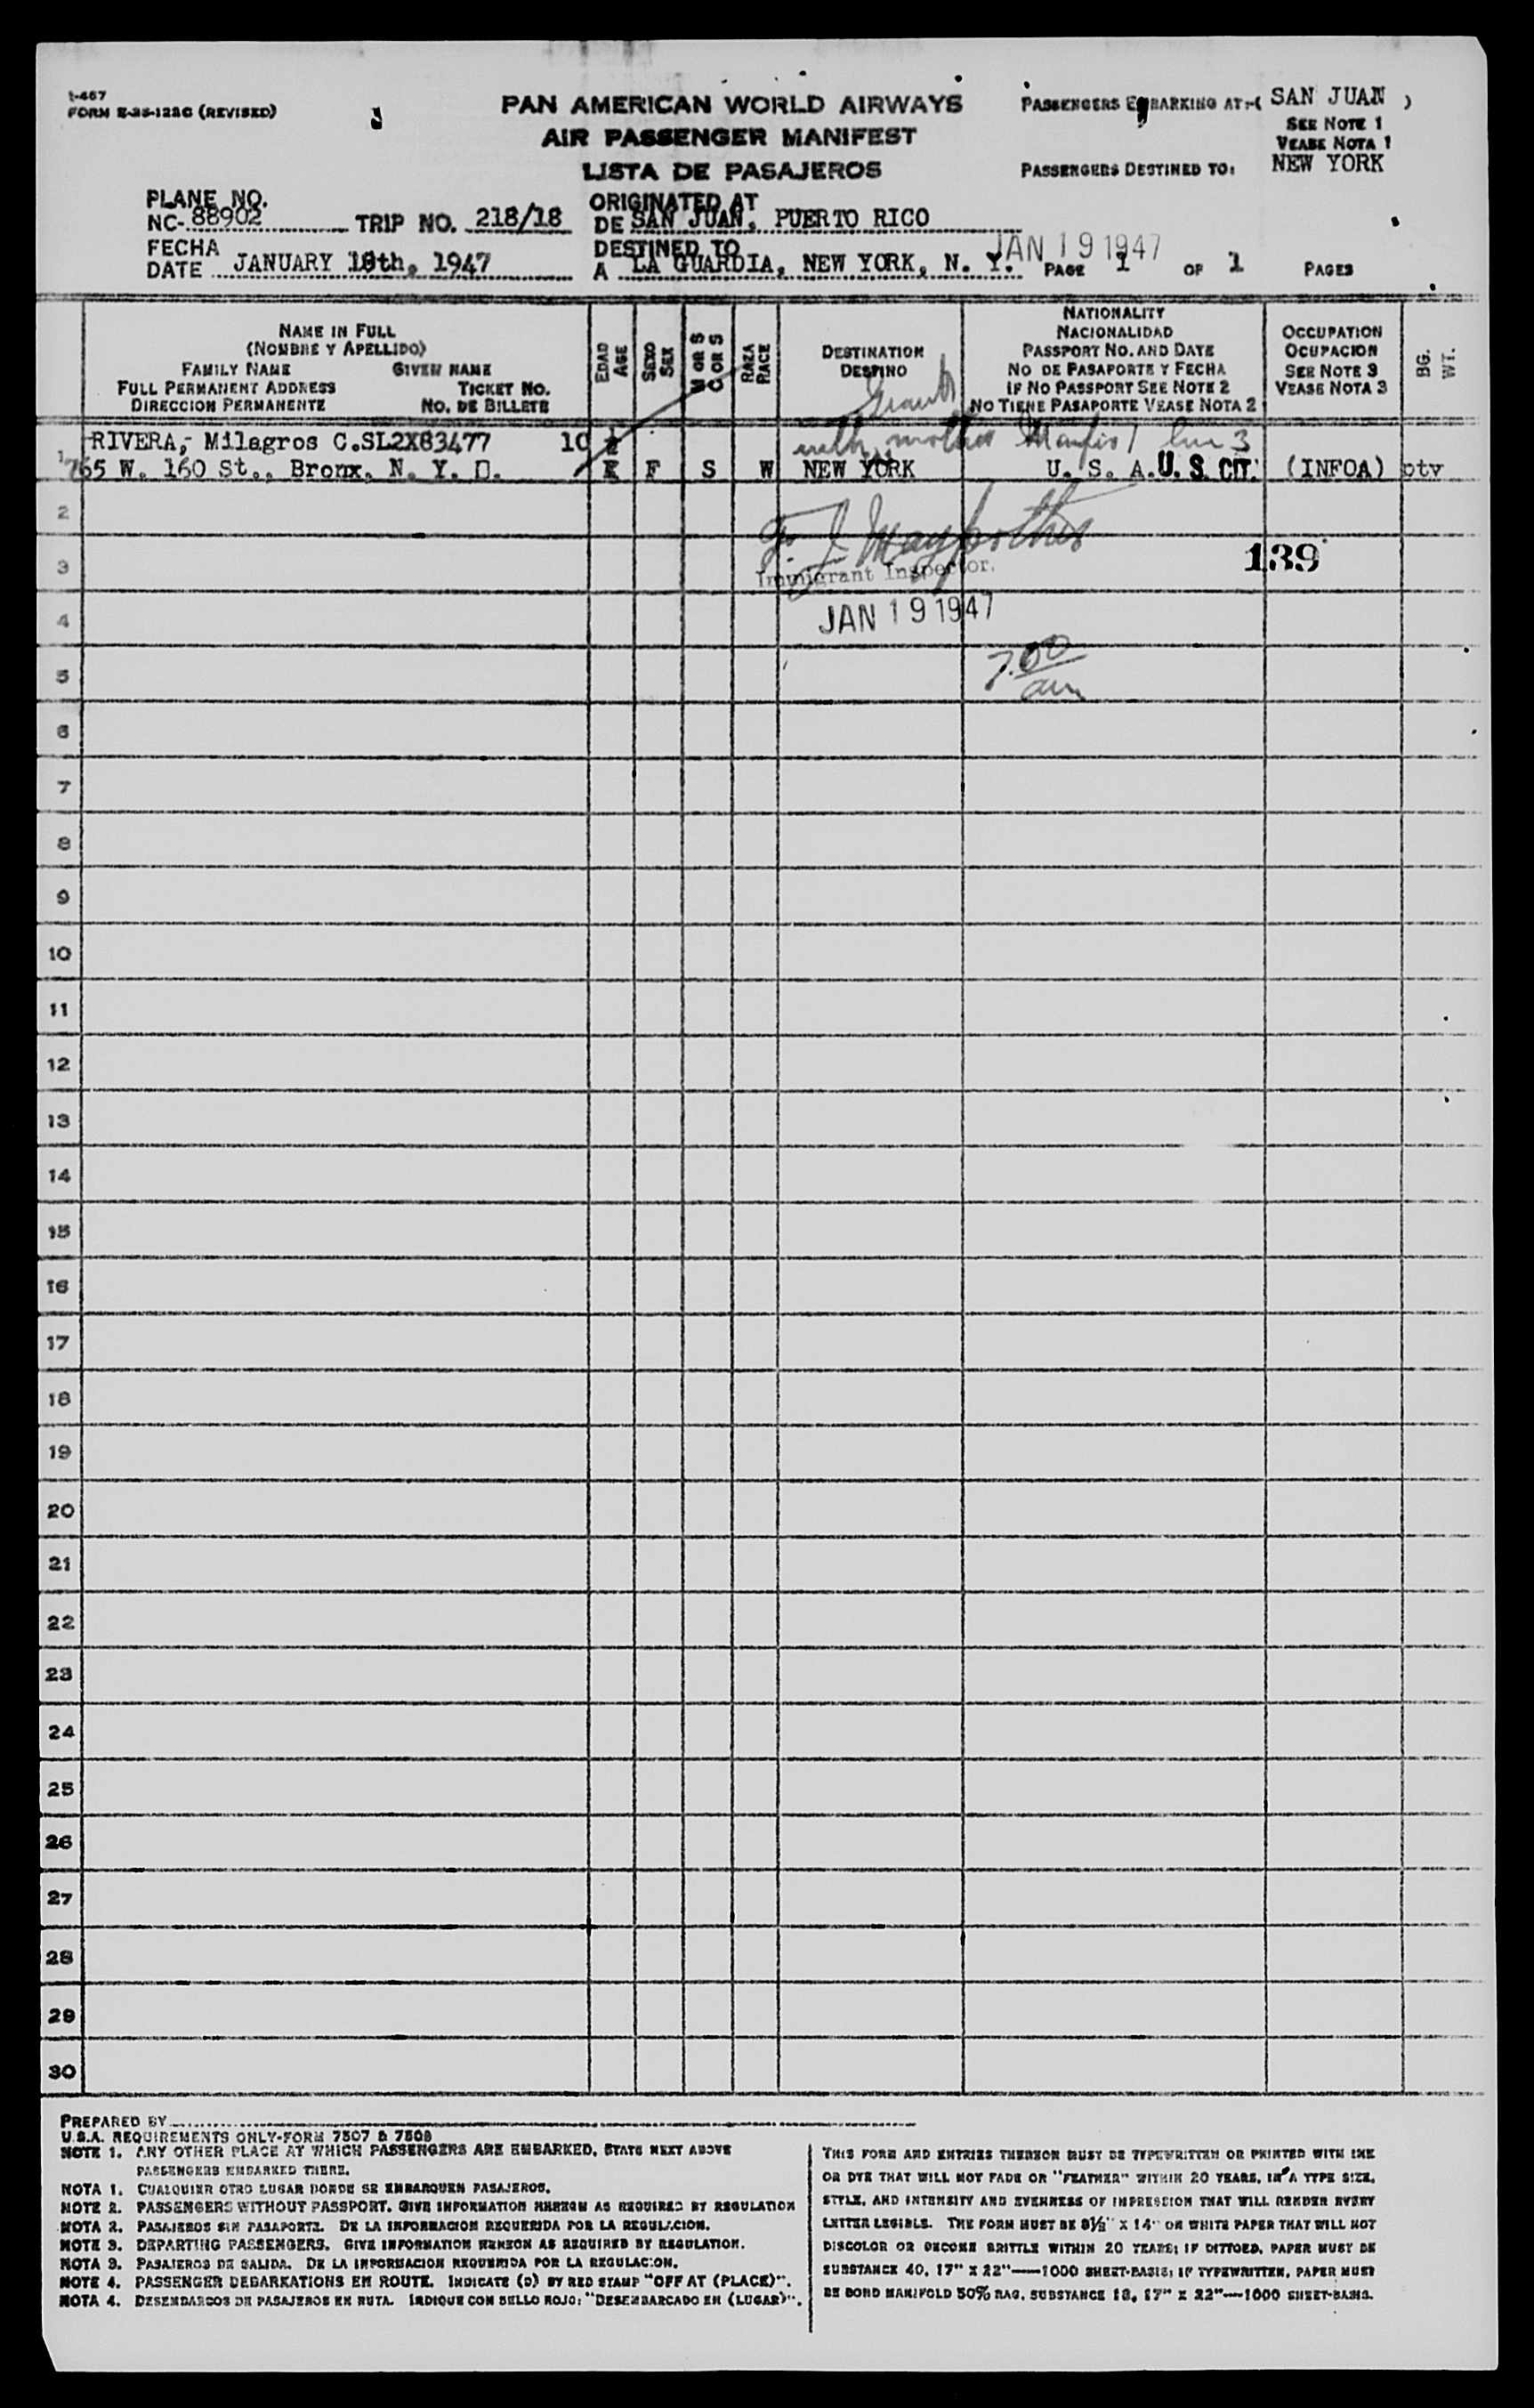 I-467
FORM E-25-122G (REVISED)
PAN AMERICAN WORLD AIRWAYS
AIR PASSENGER MANIFEST
LISTA DE PASAJEROS
PASSENGERS EMBARKING AT:-( SAN JUAN )
SEE NOTE 1
VEASE NOTA 1
PASSENGERS DESTINED TO: NEW YORK
PLANE NO.
NC-88902 TRIP NO. 218/18
ORIGINATED AT
DE SAN JUAN, PUERTO RICO
FECHA
DATE JANUARY 18th, 1947
DESTINED TO
A LA GUARDIA, NEW YORK, N. Y.
JAN 19 1947
PAGE 1 OF 1 PAGES
NAME IN FULL
(NOMBRE Y APELLIDO)
FAMILY NAME GIVEN NAME
FULL PERMANENT ADDRESS TICKET NO.
DIRECCION PERMANENTE NO. DE BILLETE
EDAD
AGE
SEXO
SEX
M OR S
C OR S
RAZA
RACE
DESTINATION
DESTINO
NATIONALITY
NACIONALIDAD
PASSPORT NO. AND DATE
NO DE PASAPORTE Y FECHA
IF NO PASSPORT SEE NOTE 2
NO TIENE PASAPORTE VEASE NOTA 2
OCCUPATION
OCUPACION
SEE NOTE 3
VEASE NOTA 3
BG.
WT.
Grand
with mother Manfis 1 line 3
1 RIVERA, Milagros C. SL2X83477 10
765 W. 160 St., Bronx, N. Y. D. F S W NEW YORK U. S. A. U. S. CIT. (INFOA) ptv
2
3
Immigrant Inspector.
139
4
JAN 19 1947
5
7.00
am
6
7
8
9
10
11
12
13
14
15
16
17
18
19
20
21
22
23
24
25
26
27
28
29
30
PREPARED BY
U.S.A. REQUIREMENTS ONLY-FORM 7507 & 7508
NOTE 1. ANY OTHER PLACE AT WHICH PASSENGERS ARE EMBARKED, STATE NEXT ABOVE
PASSENGERS EMBARKED THERE.
NOTA 1. CUALQUIER OTRO LUGAR DONDE SE EMBARQUEN PASAJEROS.
NOTE 2. PASSENGERS WITHOUT PASSPORT. GIVE INFORMATION HEREON AS REQUIRED BY REGULATION
NOTA 2. PASAJEROS SIN PASAPORTE. DE LA INFORMACION REQUERIDA POR LA REGULACION.
NOTE 3. DEPARTING PASSENGERS. GIVE INFORMATION HEREON AS REQUIRED BY REGULATION.
NOTA 3. PASAJEROS DE SALIDA. DE LA INFORMACION REQUERIDA POR LA REGULACION.
NOTE 4. PASSENGER DEBARKATIONS EN ROUTE. INDICATE (D) BY RED STAMP "OFF AT (PLACE)".
NOTA 4. DESEMBARCOS DE PASAJEROS EN RUTA. INDIQUE CON SELLO ROJO: "DESEMBARCADO EN (LUGAR)".
THIS FORM AND ENTRIES THEREON MUST BE TYPEWRITTEN OR PRINTED WITH INK
OR DYE THAT WILL NOT FADE OR "FEATHER" WITHIN 20 YEARS, IN A TYPE SIZE,
STYLE, AND INTENSITY AND EVENNESS OF IMPRESSION THAT WILL RENDER EVERY
LETTER LEGIBLE. THE FORM MUST BE 8½" X 14" ON WHITE PAPER THAT WILL NOT
DISCOLOR OR BECOME BRITTLE WITHIN 20 YEARS; IF DITTOED, PAPER MUST BE
SUBSTANCE 40, 17" X 22"—1000 SHEET-BASIS; IF TYPEWRITTEN, PAPER MUST
BE BOND MANIFOLD 50% RAG, SUBSTANCE 18, 17" X 22"—1000 SHEET-BASIS.